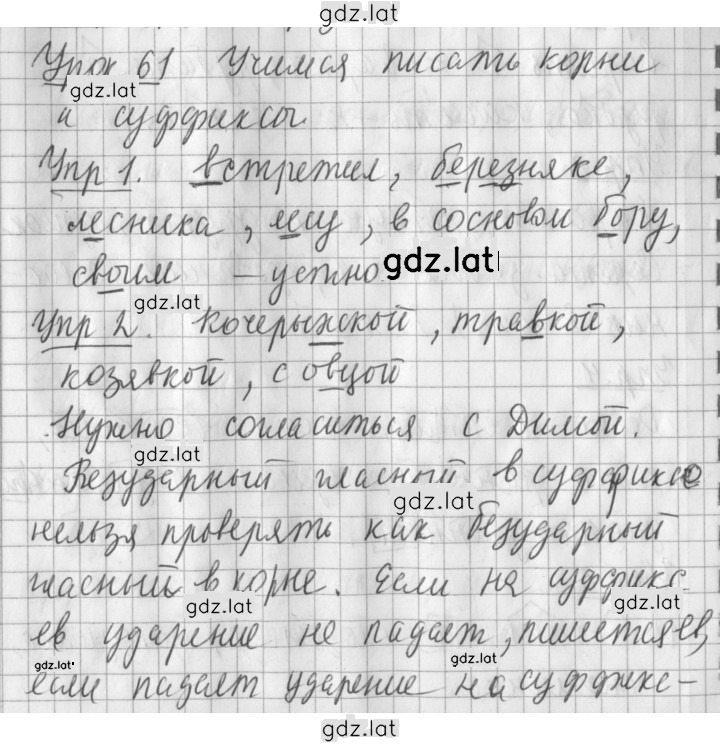 gdz.lat
Урок 61 Учимся писать корни
gdz.lat
и суффиксы
Упр 1. встретил, березняке,
лесника, лесу, в сосновом бору,
gdz.lat
своим – устно
gdz.lat
Упр 2. Кочерыжской, травкой,
козявкой, с овцой
Нужно согласиться с Димой.
gdz.lat
Безударный гласный в суффиксе
gdz.lat
нельзя проверять как безударный
гласный в корне. Если на суффикс
gdz.lat gdz.lat
ев ударение не падает, пишется ев,
gdz.lat gdz.lat
если падает ударение на суффикс –
gdz.lat